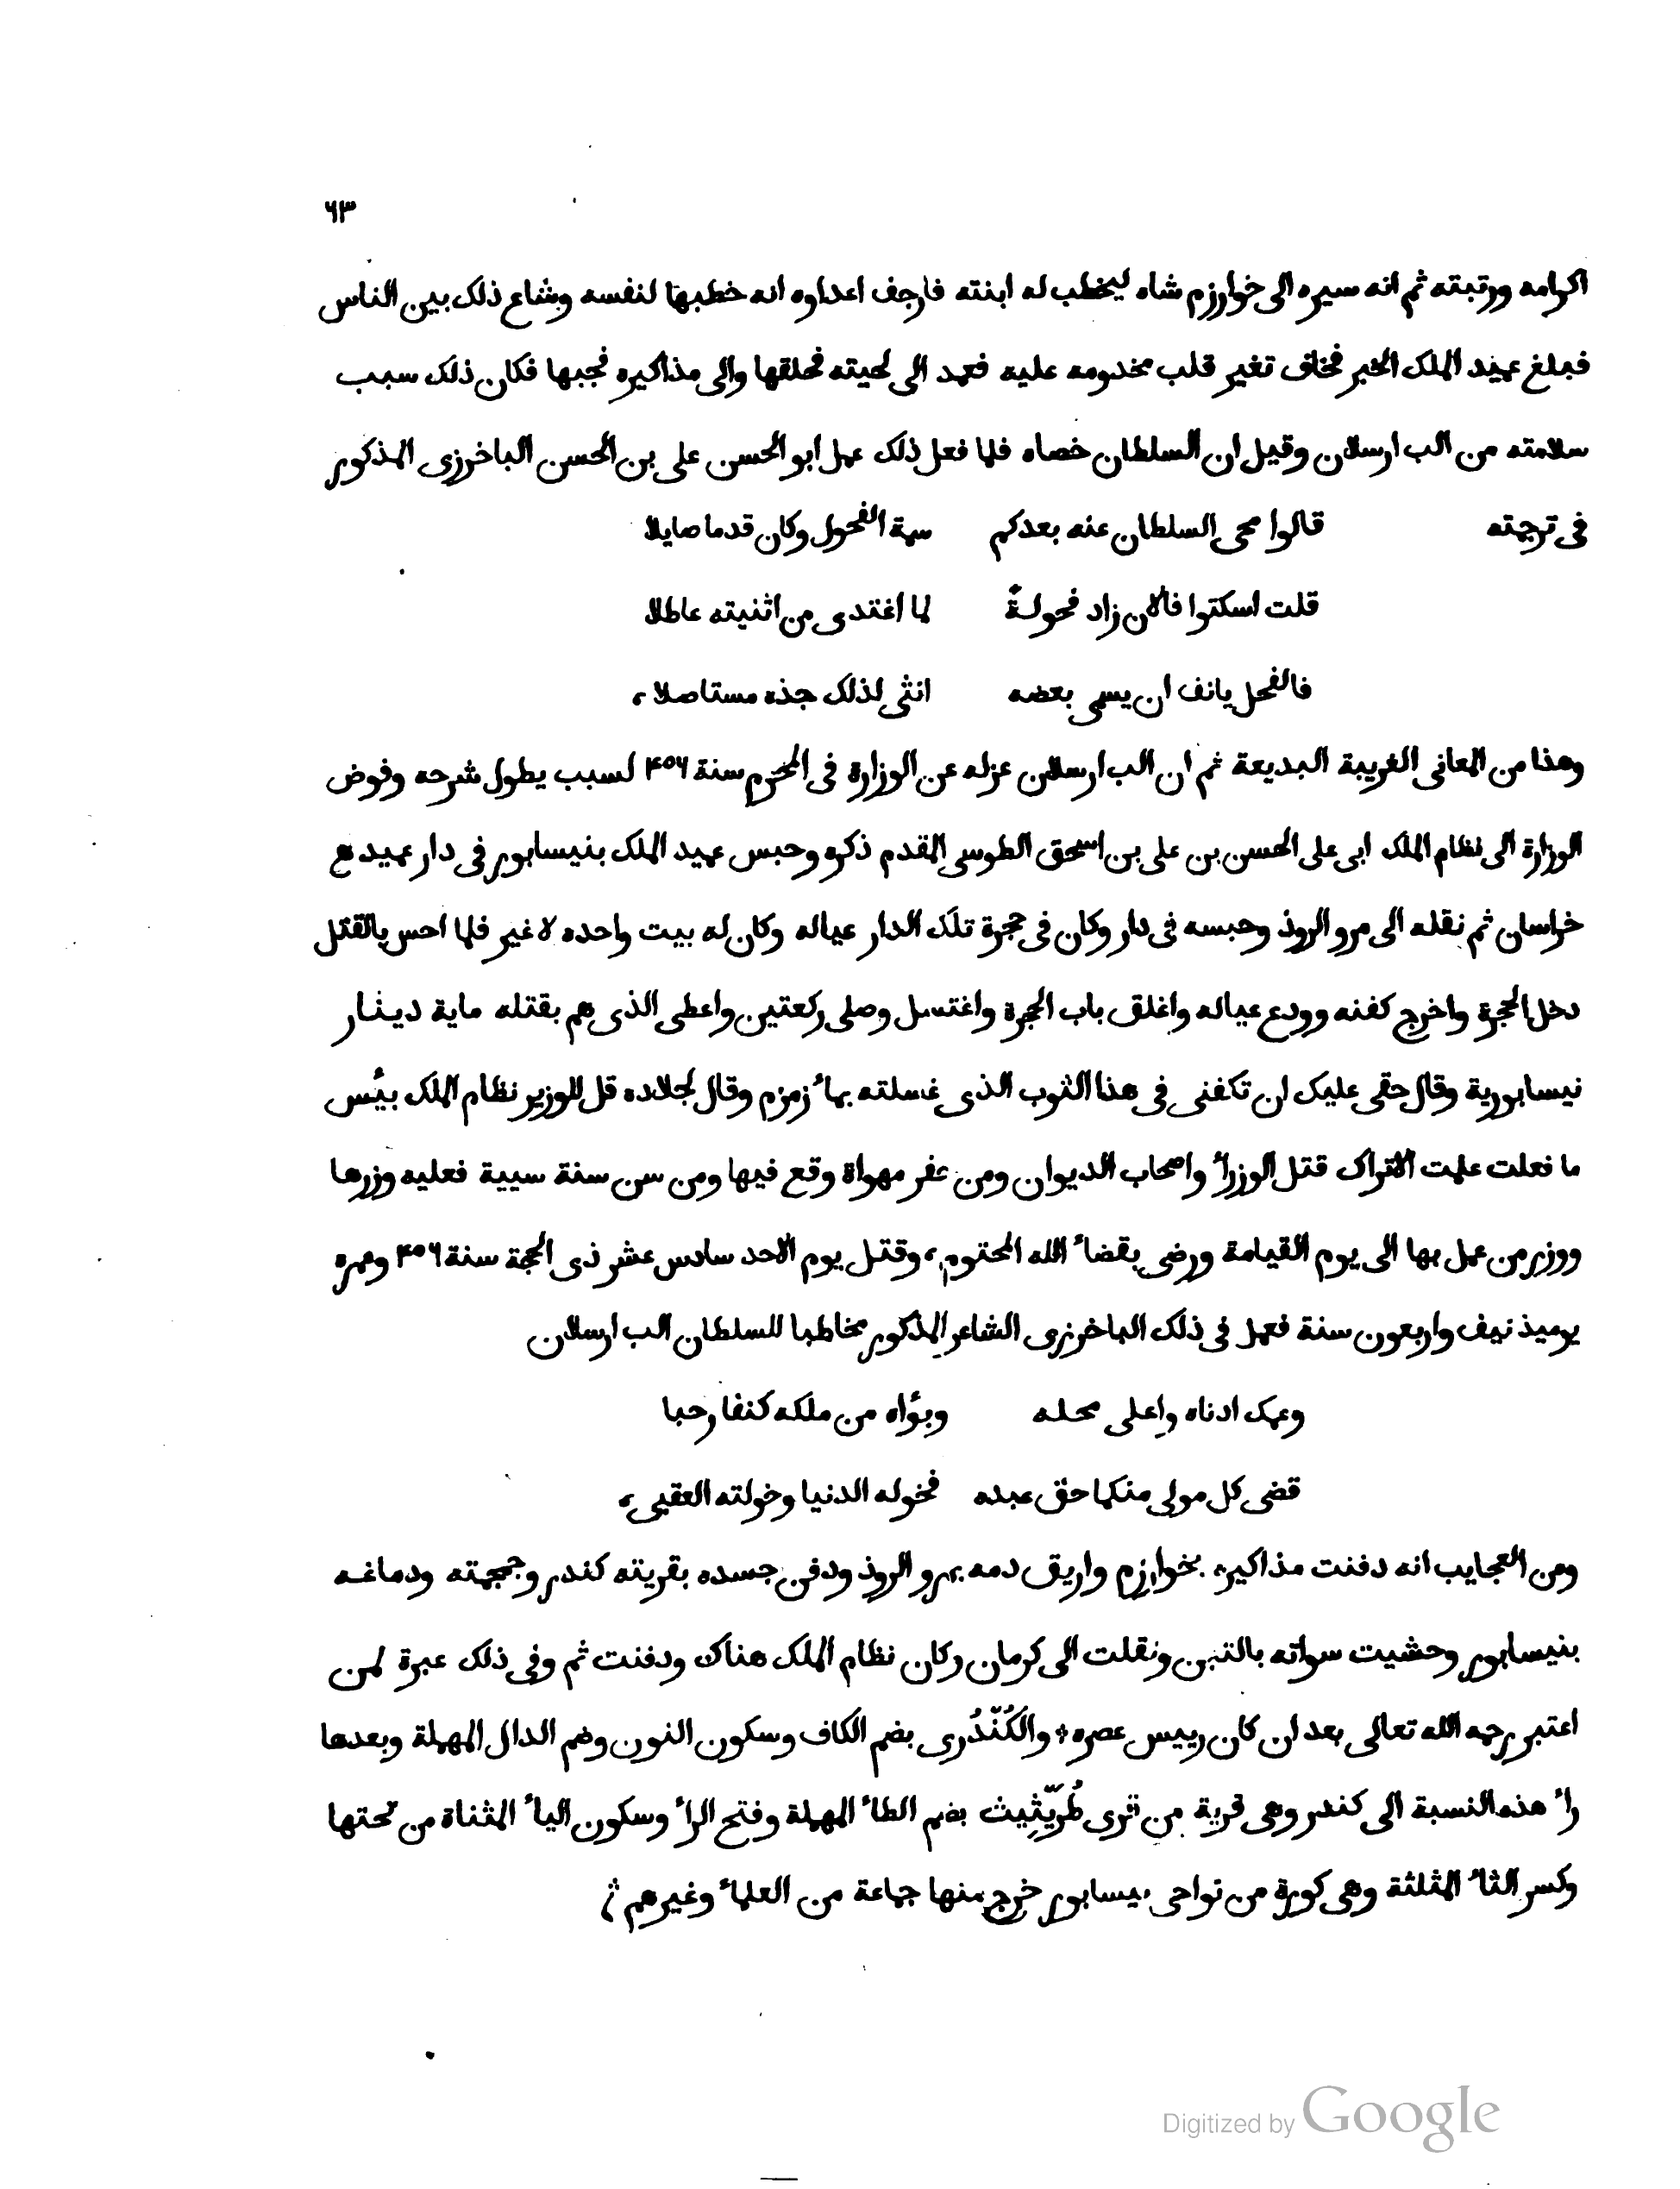 ٦٣
اكرامه ورتبته ثم انه سيره الى خوارزم شاه ليخطب له ابنته فارجف اعداوه انه خطبها لنفسه وشاع ذلك بين الناس
فبلغ عميد الملك الخبر فخاف تغير قلب مخدومه عليه فعمد الى لحيته فحلقها والى مذاكيره فجبها فكان ذلك سبب
سلامته من الب ارسلان وقيل ان السلطان خصاه فلما فعل ذلك عمل ابو الحسن على بن الحسن الباخرزى المذكور
فى ترجمته قالوا محى السلطان عنه بعدكم سمة الفحول وكان قدما صايلا
قلت اسكتوا فالان زاد فحولةً لما اغتدى من اثنيته عاطلا
فالفحل يانف ان يسمى بعضه انثى لذلك جذه مستاصلا،
وهذا من المعانى الغريبة البديعة ثم ان الب ارسلان عزله عن الوزارة فى المحرم سنة ٤٥٦ لسبب يطول شرحه وفوض
الوزارة الى نظام الملك ابى على الحسن بن على بن اسحق الطوسى المقدم ذكره وحبس عميد الملك بنيسابور فى دار عميد
خراسان ثم نقله الى مرو الروذ وحبسه فى دار وكان فى حجرة تلك الدار عياله وكان له بيت واحده لا غير فلما احس بالقتل
دخل الحجرة واخرج كفنه وودع عياله واغلق باب الحجرة واغتسل وصلى ركعتين واعطى الذى هم بقتله ماية دينار
نيسابورية وقال حقى عليك ان تكفنى فى هذا الثوب الذى غسلته بماء زمزم وقال لجلاده قل للوزير نظام الملك بئس
ما فعلت علمت الاتراك قتل الوزراء واصحاب الديوان ومن حفر مهواة وقع فيها ومن سن سنة سيية فعليه وزرها
ووزر من عمل بها الى يوم القيامة ورضى بقضاء الله المحتوم، وقتل يوم الاحد سادس عشر ذى الحجة سنة ٤٥٦ وعمره
يوميذ نيف واربعون سنة فعمل فى ذلك الباخرزى الشاعر المذكور مخاطبا للسلطان الب ارسلان
وعمك ادناه واعلى محله وبوّاه من ملكه كنفا رحبا
قضى كل مولى منكما حق عبده فخوله الدنيا وخولته العقبى،
ومن العجايب انه دفنت مذاكيره بخوارزم واريق دمه بمرو الروذ ودفن جسده بقريته كندر وجمجمته ودماغه
بنيسابور وحشيت سواته بالتبن ونقلت الى كرمان وكان نظام الملك هناك ودفنت ثم وفى ذلك عبرة لمن
اعتبر رحمه الله تعالى بعد ان كان رييس عصره، والكُنْدُرى بضم الكاف وسكون النون وضم الدال المهملة وبعدها
راء هذه النسبة الى كندر وهى قرية من قرى طُرَيْثِيث بضم الطاء المهملة وفتح الراء وسكون الياء المثناة من تحتها
وكسر الثاء المثلثة وهى كورة من نواحى نيسابور خرج منها جماعة من العلماء وغيرهم
Digitized by Google